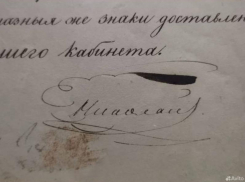 азныя же знаки доставлен
шего кабинета.
Николай